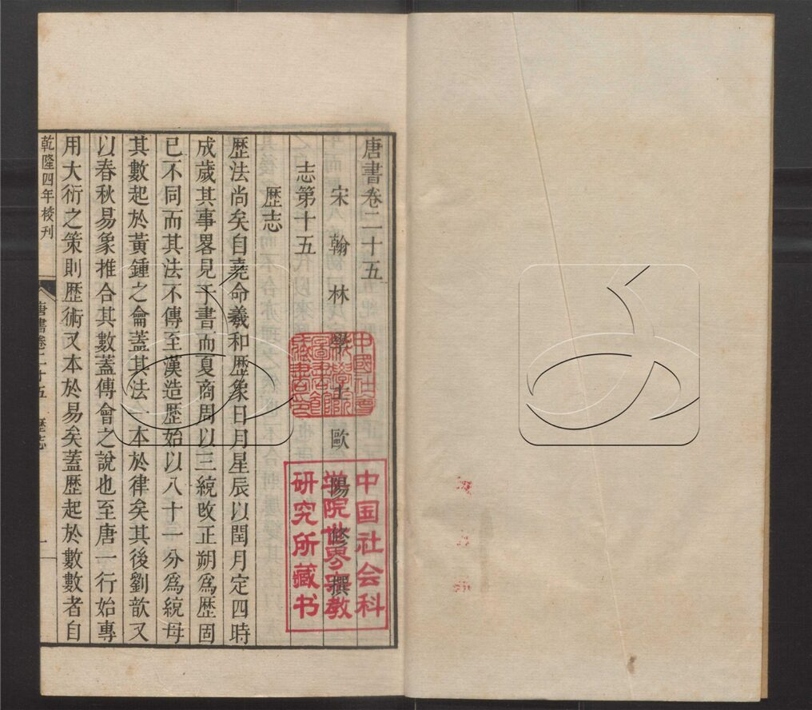 唐書卷二十五
宋翰林學士歐陽修撰
志第十五
歷志
歷法尚矣自堯命羲和歷象日月星辰以閏月定四時
成歲其事畧見于書而夏商周以三統改正朔爲歷固
已不同而其法不傳至漢造歷始以八十一分爲統母
其數起於黃鍾之龠蓋其法一本於律矣其後劉歆又
以春秋易象推合其數蓋傳會之說也至唐一行始專
用大衍之策則歷術又本於易矣蓋歷起於數數者自
乾隆四年校刊
唐書卷二十五 歷志 一
中國社會
科學院
圖書館
藏書印
中国社会科
学院世界宗教
研究所藏书